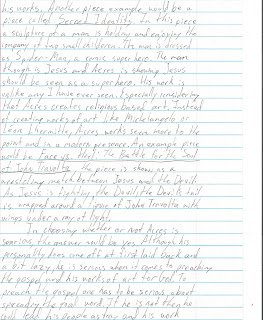 his works. Another piece example would be a
piece called Secret Identity. In this piece
a sculpture of a man is holding and enjoying the
company of two small children. The man is dressed
as Spider-Man, a comic super hero. The man
though is Jesus and Acres is showing Jesus
should be seen as a superhero. His work is
unlike any I have ever seen. Especially considering
that Acres creates religious based art. Instead
of creating works of art like Michelangelo or
Léon Lhermitte, Acres works seem more to the
point and in a modern presence. An example piece
would be Face vs. Heel: The Battle for the Soul
of John Travolta. The piece is shown as a
wrestling match between Jesus and the Devil.
As Jesus is fighting the Devil, the Devil's tail
is wrapped around a figure of John Travolta with
wings under a ray of light.
In choosing whether or not Acres is
serious, the answer would be yes. Although his
personality does come off at first laid back and
a bit lazy, he is serious when it comes to preaching
the gospel and his works of art for God. To
preach the gospel one has to be serious about
spreading the real word. If he is not then he
could lead his people astray and his work